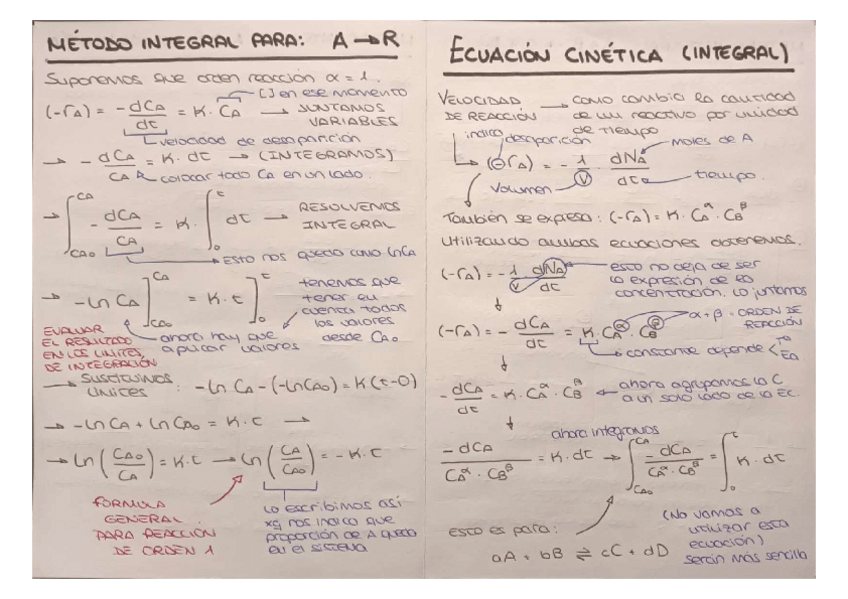 MÉTODO INTEGRAL PARA: A → R
Suponemos que orden reacción α = 1.
[ ] en ese momento
(-rA) = -dCA/dt = K · CA → JUNTAMOS VARIABLES
velocidad de desaparición
→ - dCA/CA = K · dt → (INTEGRAMOS)
colocar todo CA en un lado.
→ ∫_{CA0}^{CA} - dCA/CA = K · ∫_0^t dt → RESOLVEMOS INTEGRAL
Esto nos queda como ln CA
→ -ln CA ]_{CA0}^{CA} = K · t ]_0^t
tenemos que
tener en
cuenta todos
los valores
desde CA0
ahora hay que
aplicar valores
EVALUAR
EL RESULTADO
EN LOS LIMITES,
DE INTEGRACIÓN
→ Sustituimos límites : -ln CA - (-ln CA0) = K (t - 0)
→ -ln CA + ln CA0 = K · t →
→ ln (CA0/CA) = K · t → ln (CA/CA0) = -K · t
FORMULA
GENERAL
PARA REACCIÓN
DE ORDEN 1
Lo escribimos así
xq nos indica que
proporción de A queda
en el sistema
ECUACIÓN CINÉTICA (INTEGRAL)
VELOCIDAD DE REACCIÓN → como cambia la cantidad
de un reactivo por unidad
de tiempo
indica desaparición
moles de A
(-rA) = - 1/V · dNA/dt
Volumen
tiempo.
También se expresa : (-rA) = K · CA^α · CB^β
Utilizando ambas ecuaciones obtenemos.
(-rA) = - 1/V dNA/dt
esto no deja de ser
la expresión de la
concentración. Lo juntamos
(-rA) = - dCA/dt = K · CA^α · CB^β
α + β = ORDEN DE
REACCIÓN
constante depende < Tª Ea
- dCA/dt = K · CA^α · CB^β
ahora agrupamos la C
a un solo lado de la EC.
ahora integramos
-dCA/(CA^α · CB^β) = K · dt → ∫_{CA0}^{CA} -dCA/(CA^α · CB^β) = ∫_0^t K · dt
esto es para:
aA + bB ⇌ cC + dD
(No vamos a
utilizar esta
ecuación)
serán más sencilla